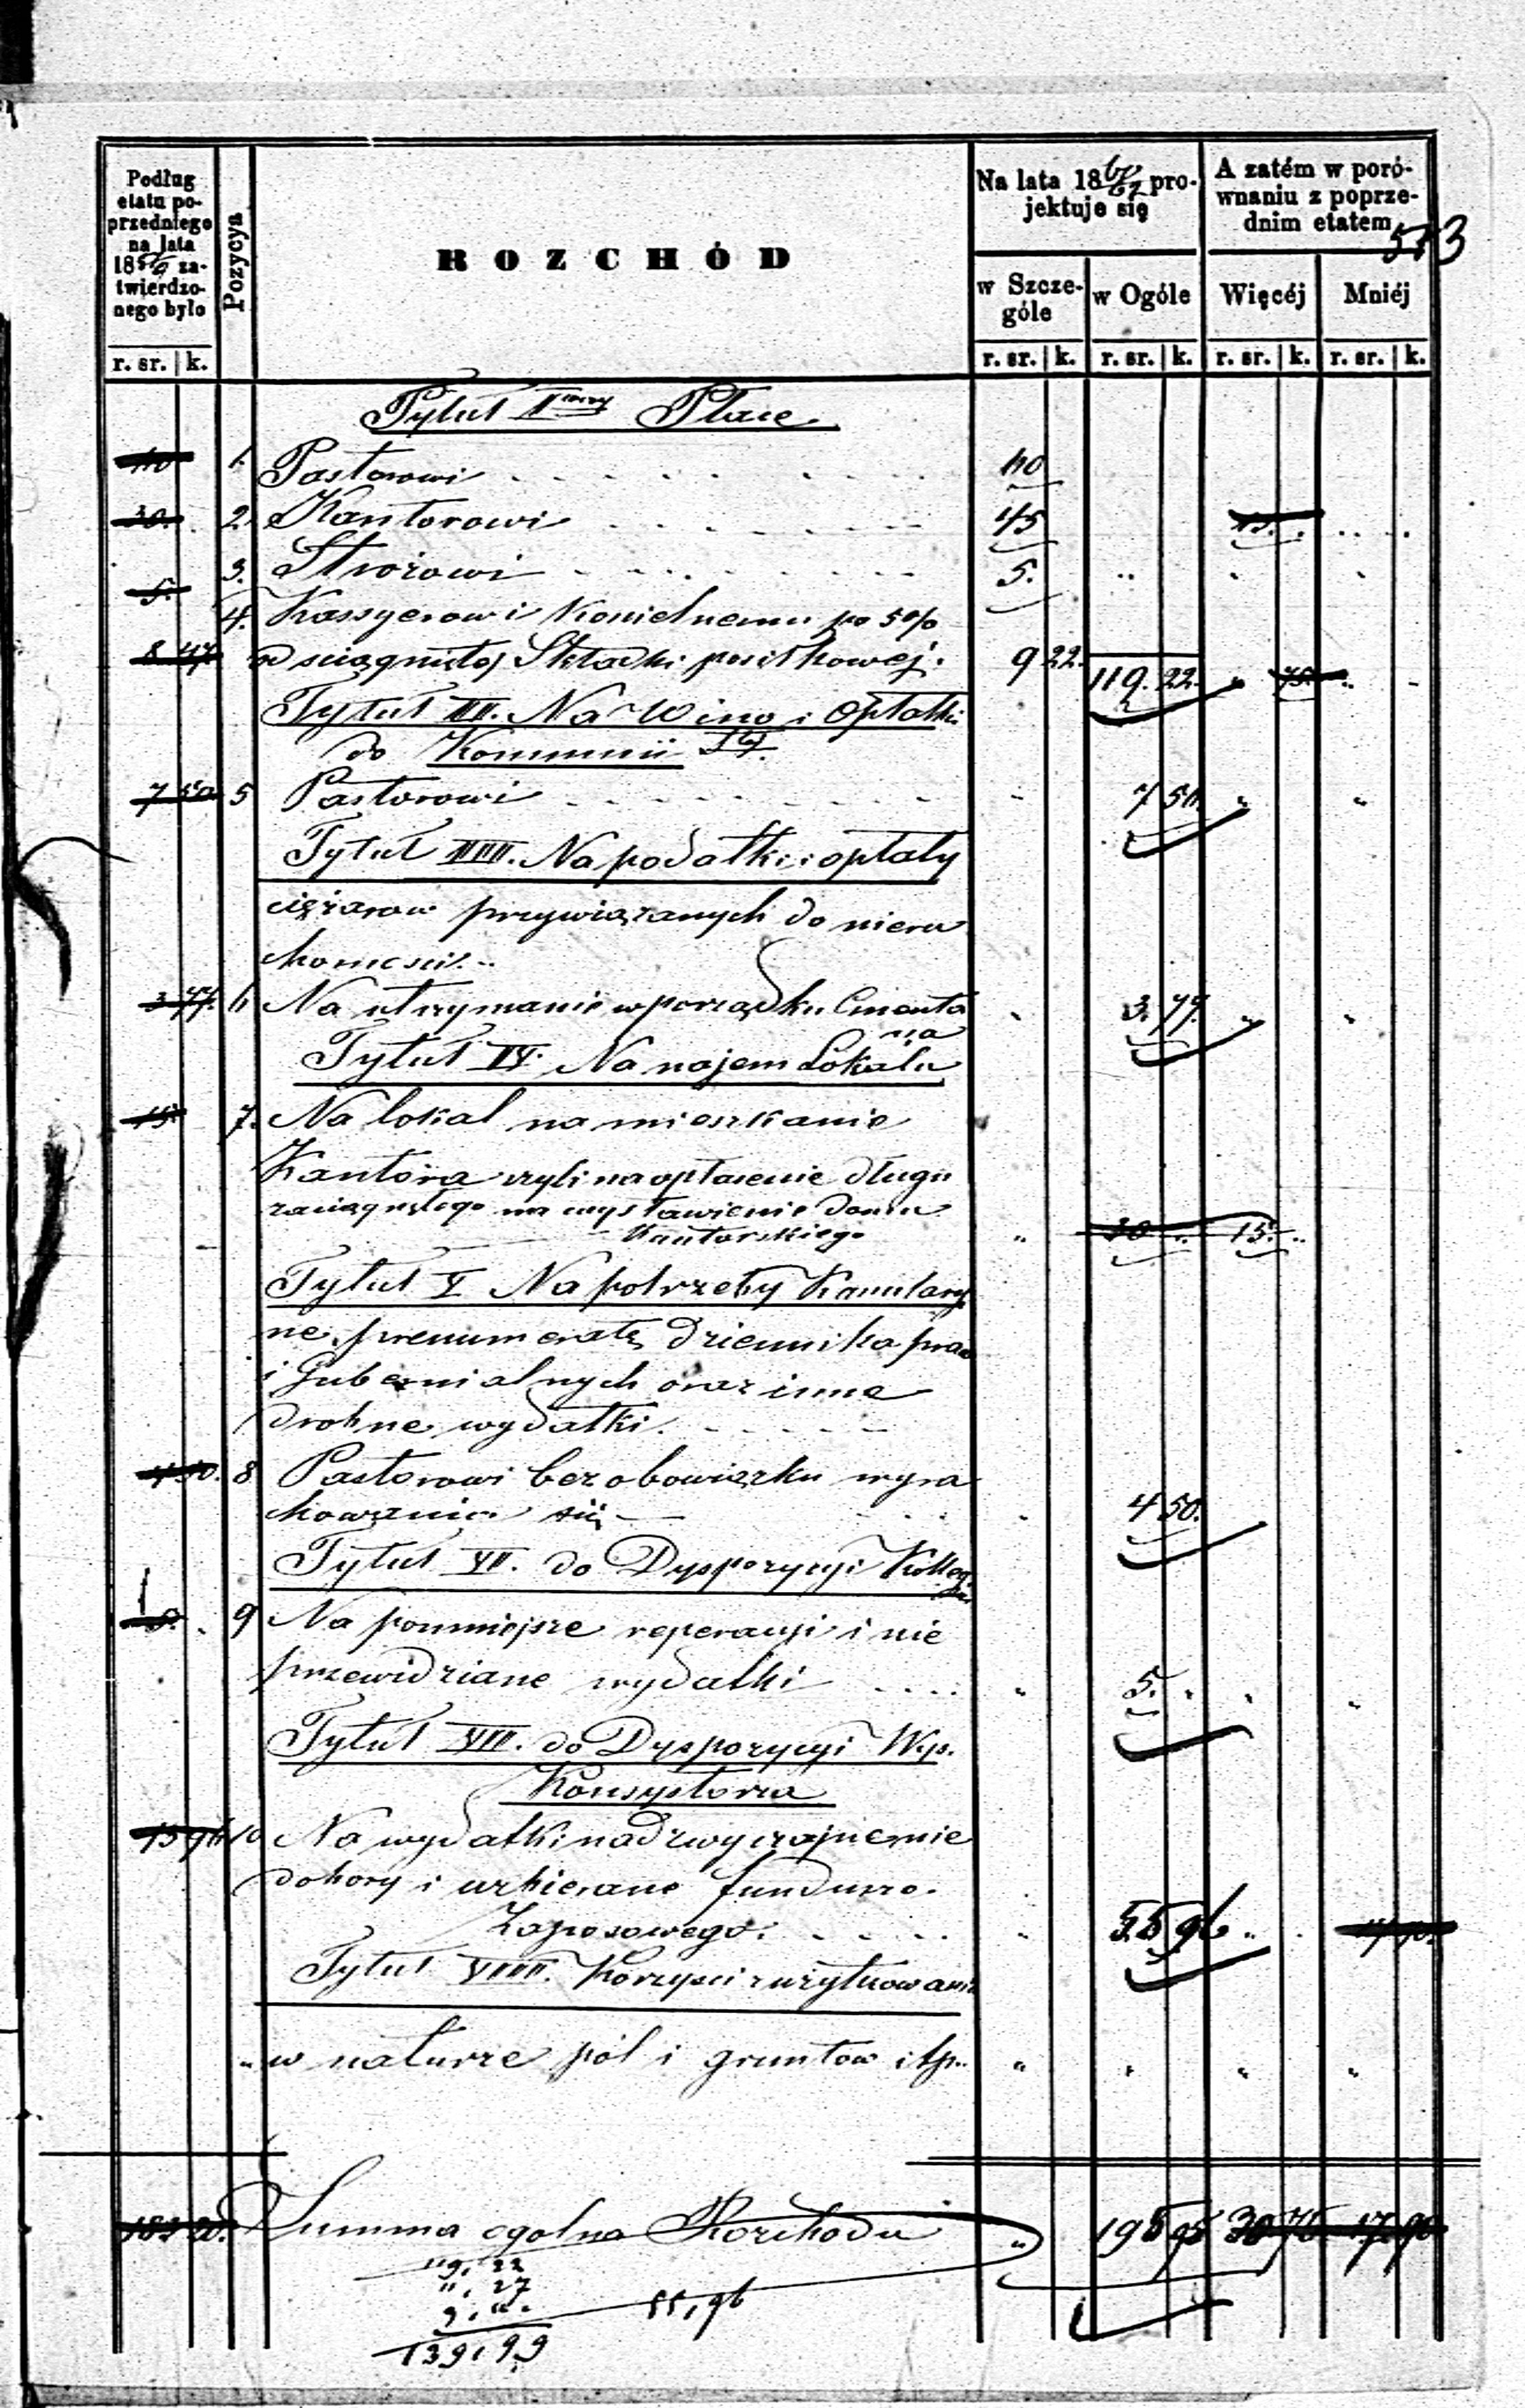 Podług etatu poprzedniego na lata 18 zatwierdzonego było
Pozycya
ROZCHÓD
Na lata 18 projektuje się
A zatém w porównaniu z poprzednim etatem
513
w Szczególe
w Ogóle
Więcéj
Mniéj
r. sr. | k.
r. sr. | k.
r. sr. | k.
r. sr. | k.
r. sr. | k.
Tytuł Płace
1. Pastorowi
2. 30. Kantorowi 45 15.
5. 3. Stróżowi 5.
4. Kassyerowi Kościelnemu po 5%
8 47 od ściągniętej Składki posiłkowej. 9 22. 119. 22. 75.
Tytuł III. Na Wino i Opłatki
do Kommunii
7 50 5 Pastorowi 7 50.
Tytuł IIII. Na podatki i opłaty
ciężarow przywiązanych do nieru
chomości.
3 77. 6 Na utrzymanie w porządku Cmenta 3. 77.
rza
Tytuł IV. Na najem Lokalu
15. 7. Na lokal na mieszkanie
Kantora czyli na opłacenie długu
zaciągnętego na wystawienie Domu
Kantorskiego 30 15.
Tytuł V Na potrzeby Kancelaryj
ne, prenumeratę, dziennika praw
i Gubernialnych oraz inne
drobne wydatki.
4 50. 8 Pastorowi bez obowiązku wyra
chowania się 4 50.
Tytuł VI. do Dyspozycyi
9 Na pomniejsze reperacyi i nie
przewidziane wydatki 5.
Tytuł VII. do Dyspozycyi
Konsystorza
10 Na wydatki nadzwyczajne
i uzbierane
Zapasowego. 55 96
Tytuł VIII. Korzyści z użytkowania
w naturze pól i gruntow itp.
Summa ogolna Rozchodu 195 95 30 17. 90
119, 22
", 27
55, 96
139, 99